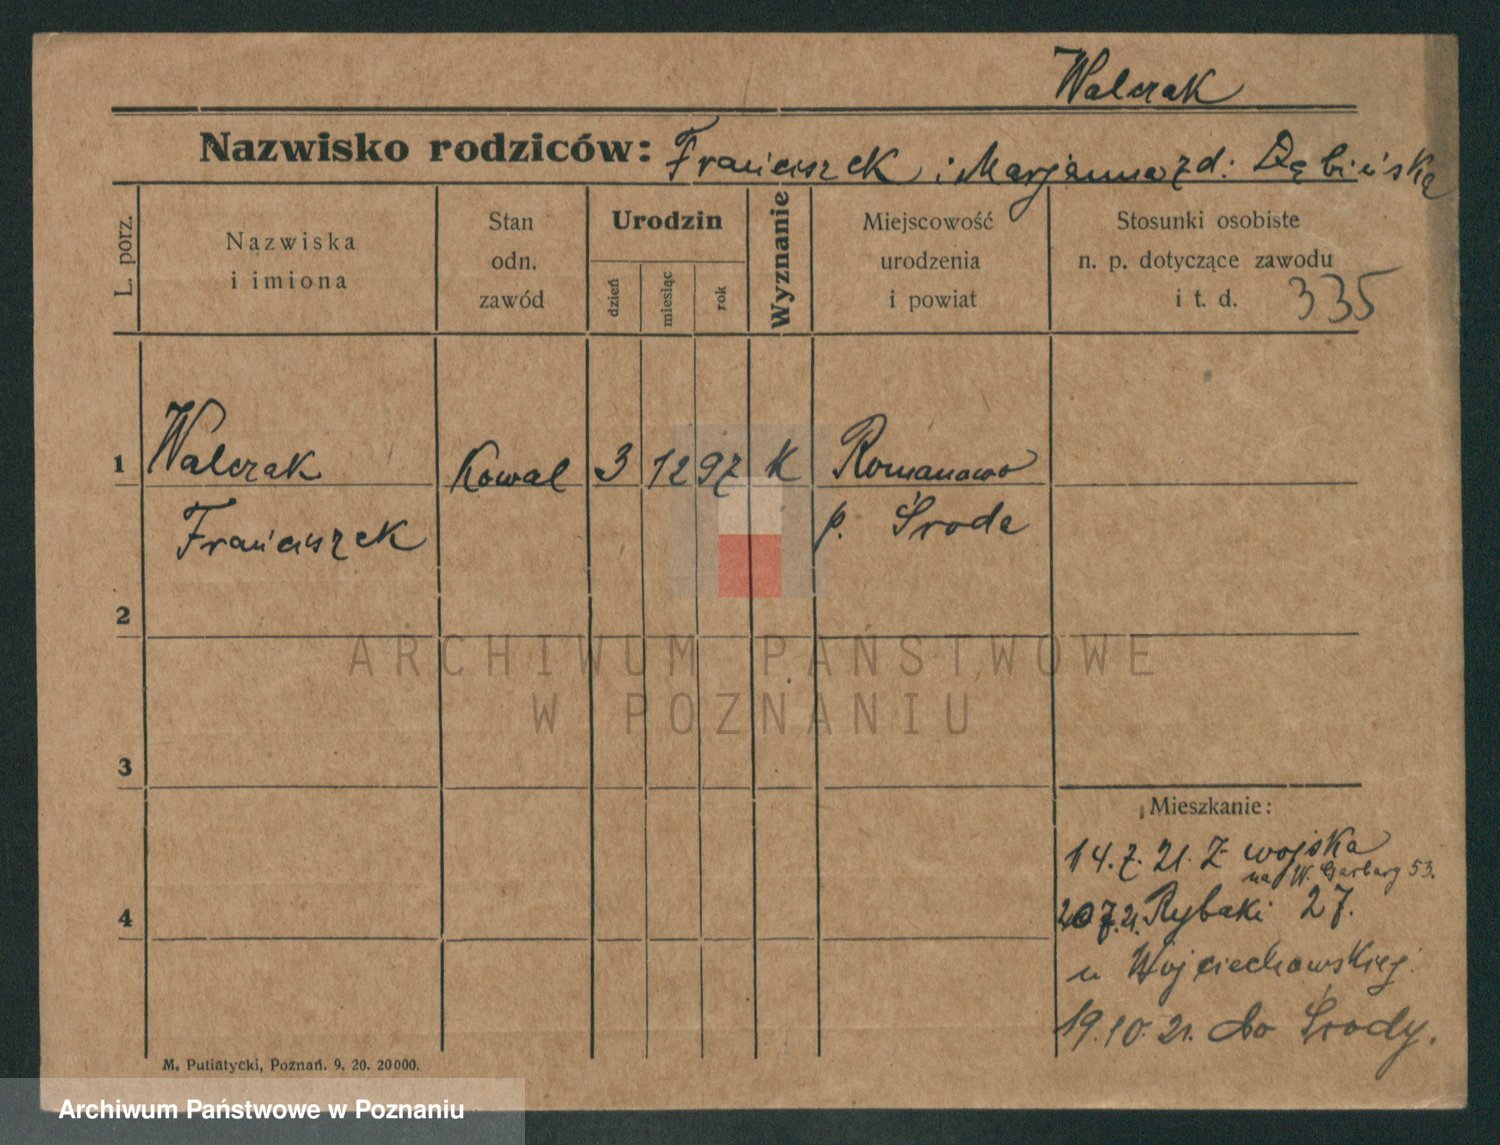 Walczak
Nazwisko rodziców: Franciszek i Marjanna zd: Dębińska
L. porz.
Nazwiska
i imiona
Stan
odn.
zawód
Urodzin
dzień
miesiąc
rok
Wyznanie
Miejscowość
urodzenia
i powiat
Stosunki osobiste
n. p. dotyczące zawodu
i t. d.
335
1 Walczak Kowal 3 12 97 K Romanowo
Franciszek p. Środa
2
ARCHIWUM PAŃSTWOWE
W POZNANIU
3
Mieszkanie:
14. 7. 21. Z wojska
na W. Garbary 53.
4
20 7. 21. Rybaki 27.
u Wojciechowskiej
19. 10. 21. do Środy.
M. Putiatycki, Poznań. 9. 20. 20000.
Archiwum Państwowe w Poznaniu